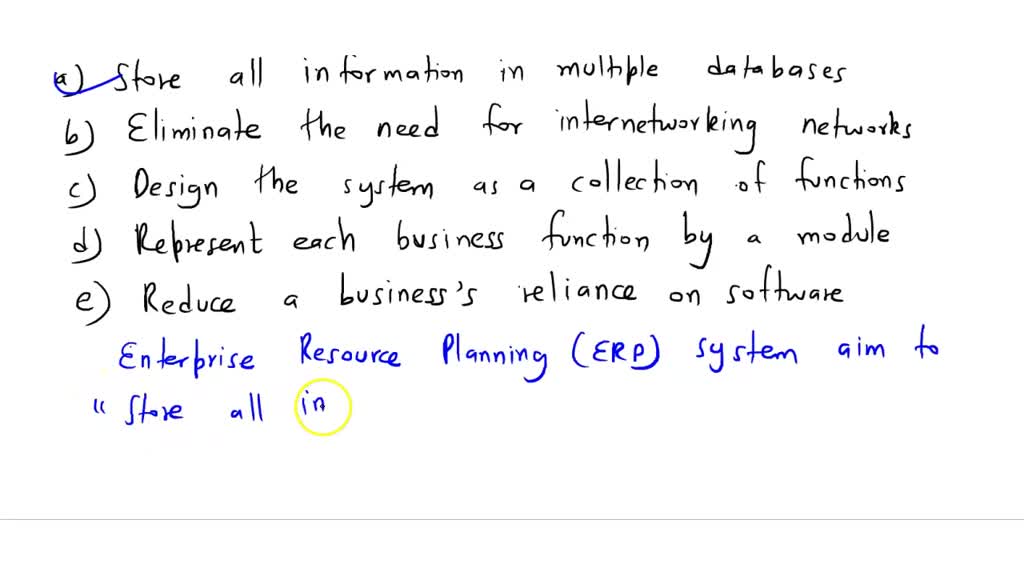 a) Store all information in multiple databases
b) Eliminate the need for internetworking networks
c) Design the system as a collection of functions
d) Represent each business function by a module
e) Reduce a business's reliance on software
Enterprise Resource Planning (ERP) system aim to
" Store all in